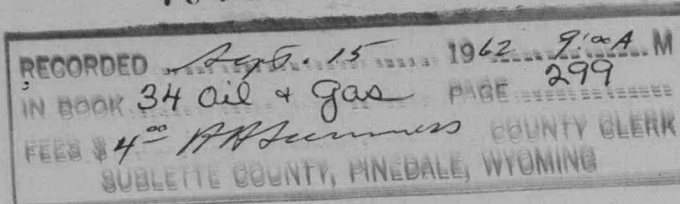 RECORDED Sept. 15 1962 9:00 A M
IN BOOK 34 Oil & Gas PAGE 299
FEES $ 4.00 COUNTY CLERK
SUBLETTE COUNTY, PINEDALE, WYOMING